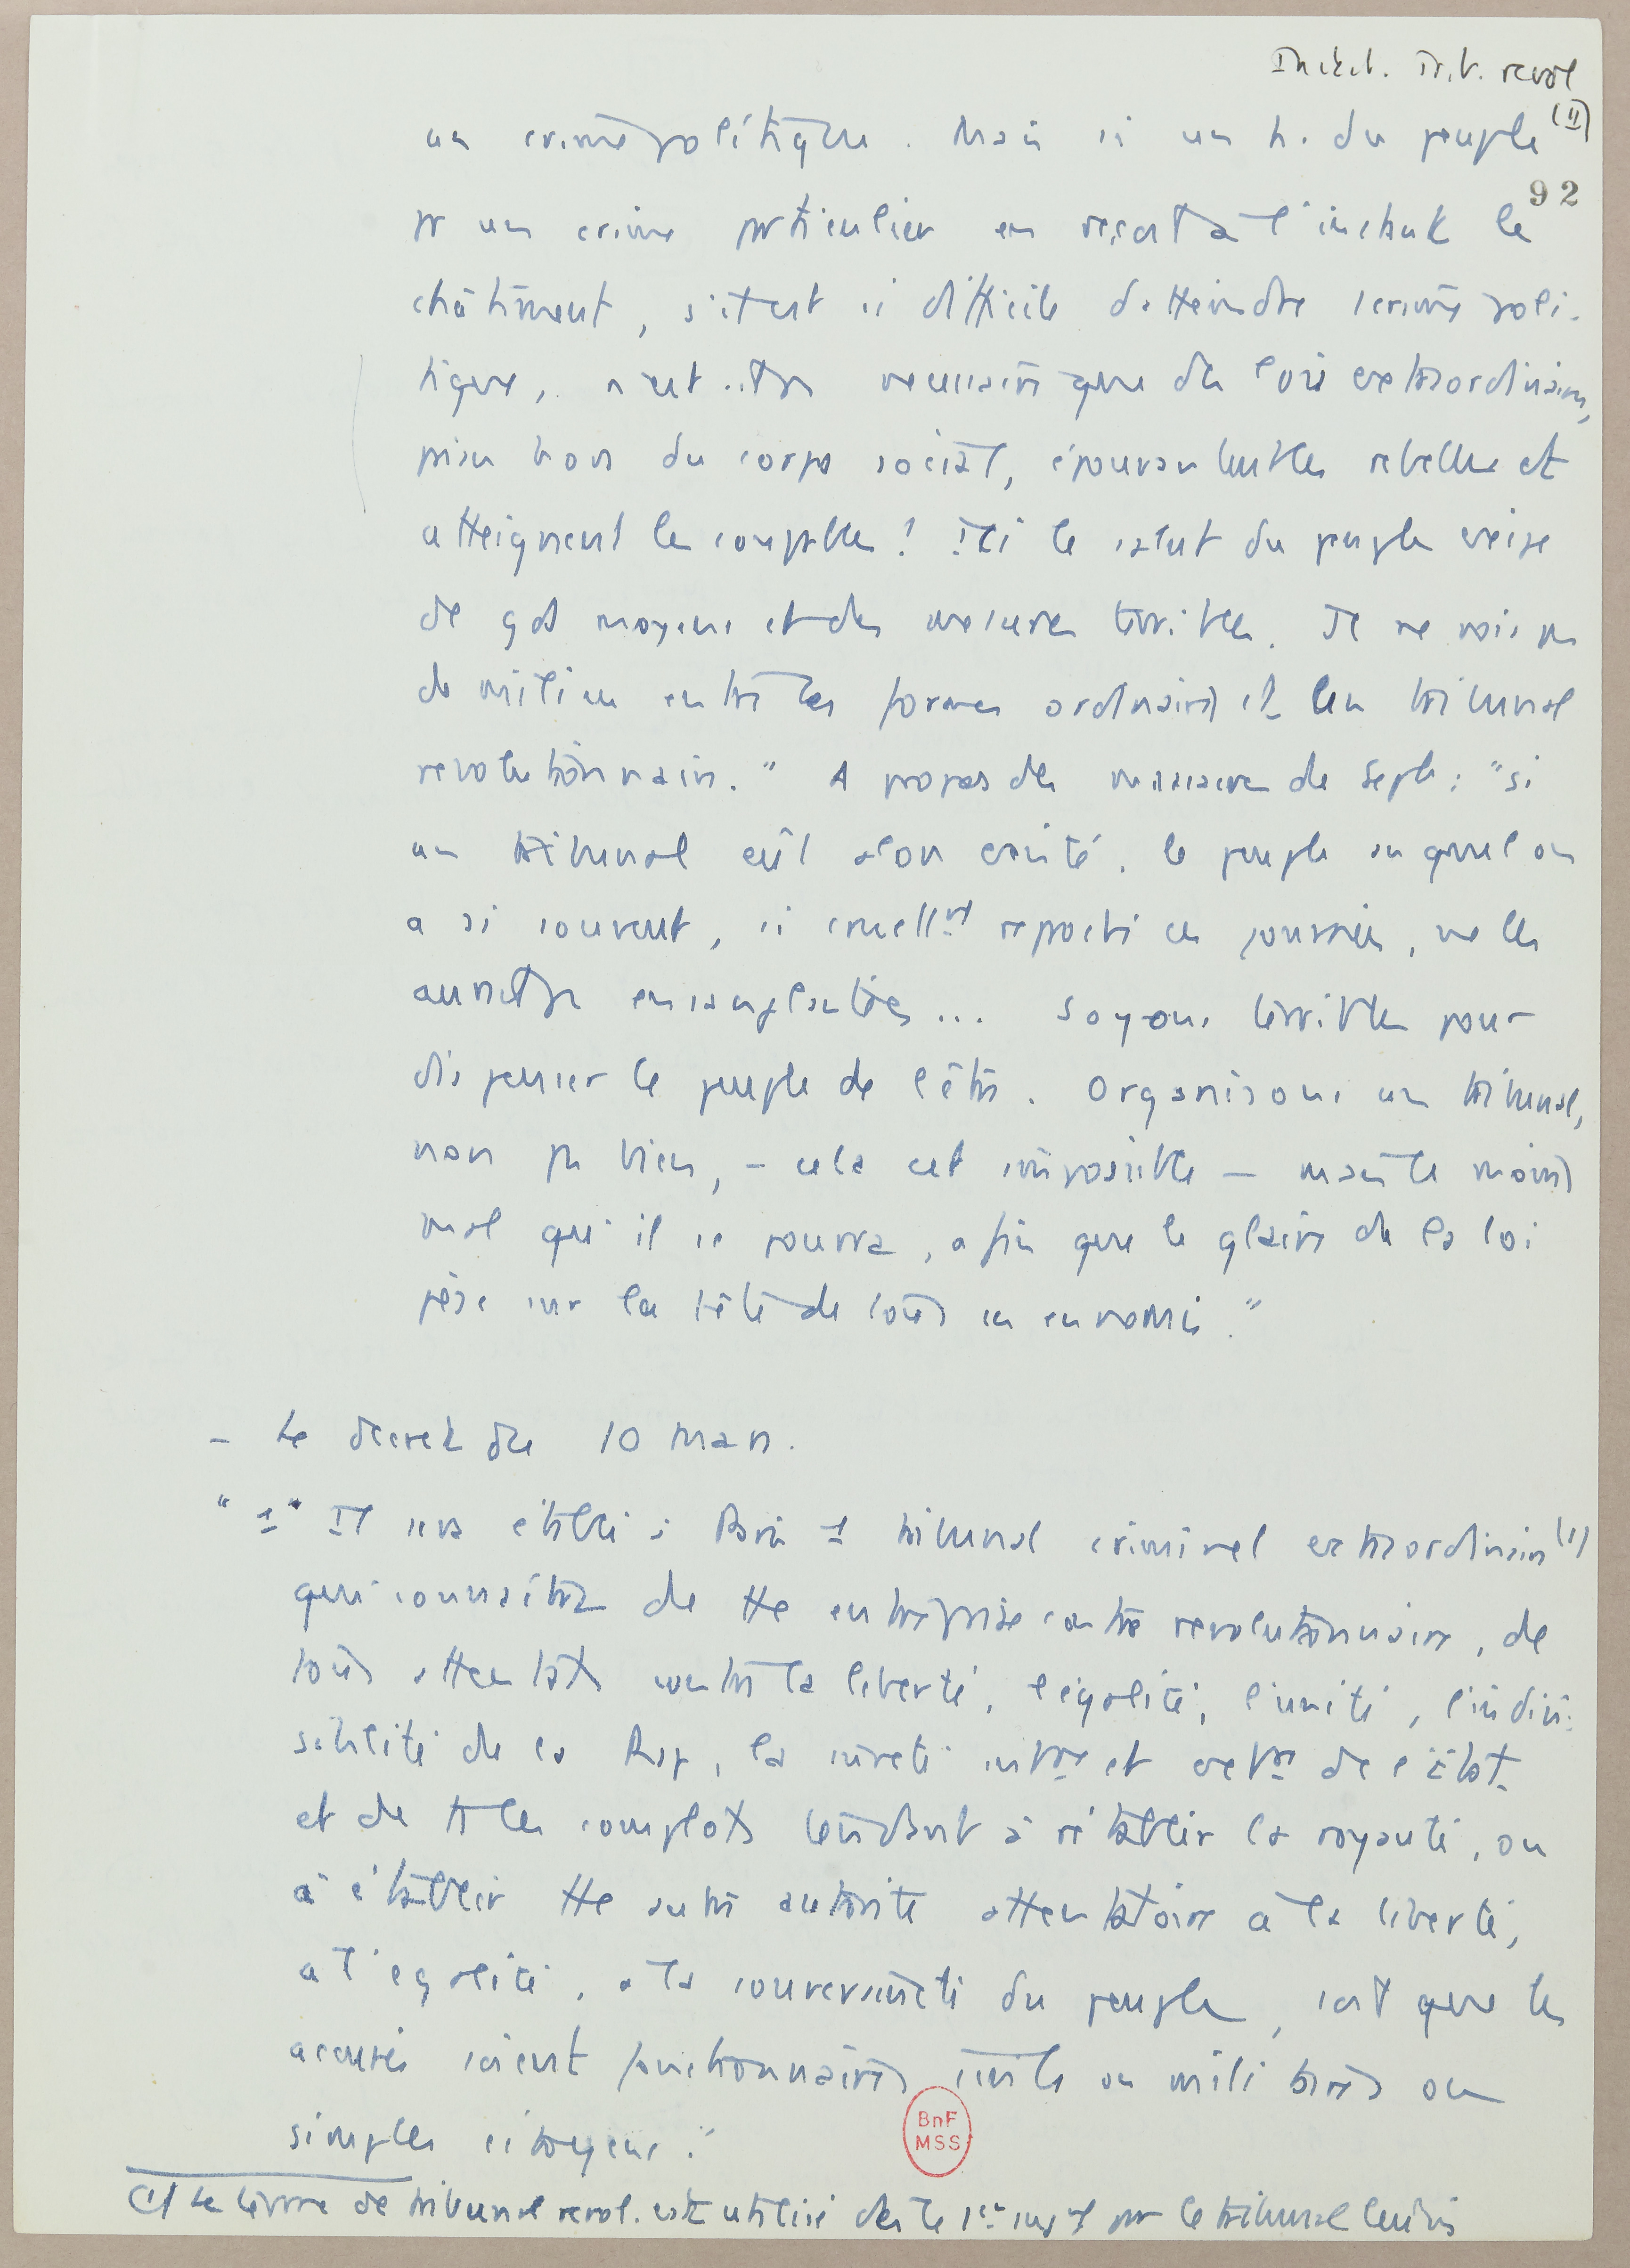 Instit. Trib. revol
(II)
un crime politique. Mais si un h. du peuple
92
pr un crime particulier en reçoit à l'instant le
châtiment, s'il est si difficile d'atteindre 1 crime poli-
tique, n'est-il pas nécessaire que des lois extraordinaires,
prises hors du corps social, épouvantent les rebelles et
atteignent les coupables ! Ici le salut du peuple exige
de gds moyens et des mesures terribles. Je ne vois pas
de milieu entre les formes ordinaires et un tribunal
révolutionnaire." A propos des massacres de Sept: "si
un tribunal eût alors existé, le peuple auquel on
a si souvent, si cruellt reproché ces journées, ne les
aurait pas ensanglantées... Soyons terribles pour
dispenser le peuple de l'être. Organisons un tribunal,
non pas bien, - cela est impossible - mais le moins
mal qu'il se pourra, afin que le glaive de la loi
pèse sur la tête de tous ses ennemis."
- Le décret du 10 Mars.
"1° Il sera établi à Paris 1 tribunal criminel extraordinaire (1)
qui connaîtra de tte entreprise contre révolutionnaire, de
tous attentats contre la liberté, l'égalité, l'unité, l'indivi-
sibilité de la Rép, la sûreté intre et extre de l'Etat
et de ts les complots tendant à rétablir la royauté, ou
à établir tte autre autorité attentatoire à la liberté,
à l'égalité, à la souveraineté du peuple, soit que les
accusés soient fonctionnaires civils ou militaires ou
simples citoyens."
BnF
MSS
(1) Le terme de tribunal révol. est utilisé dès le 1er par le tribunal lui